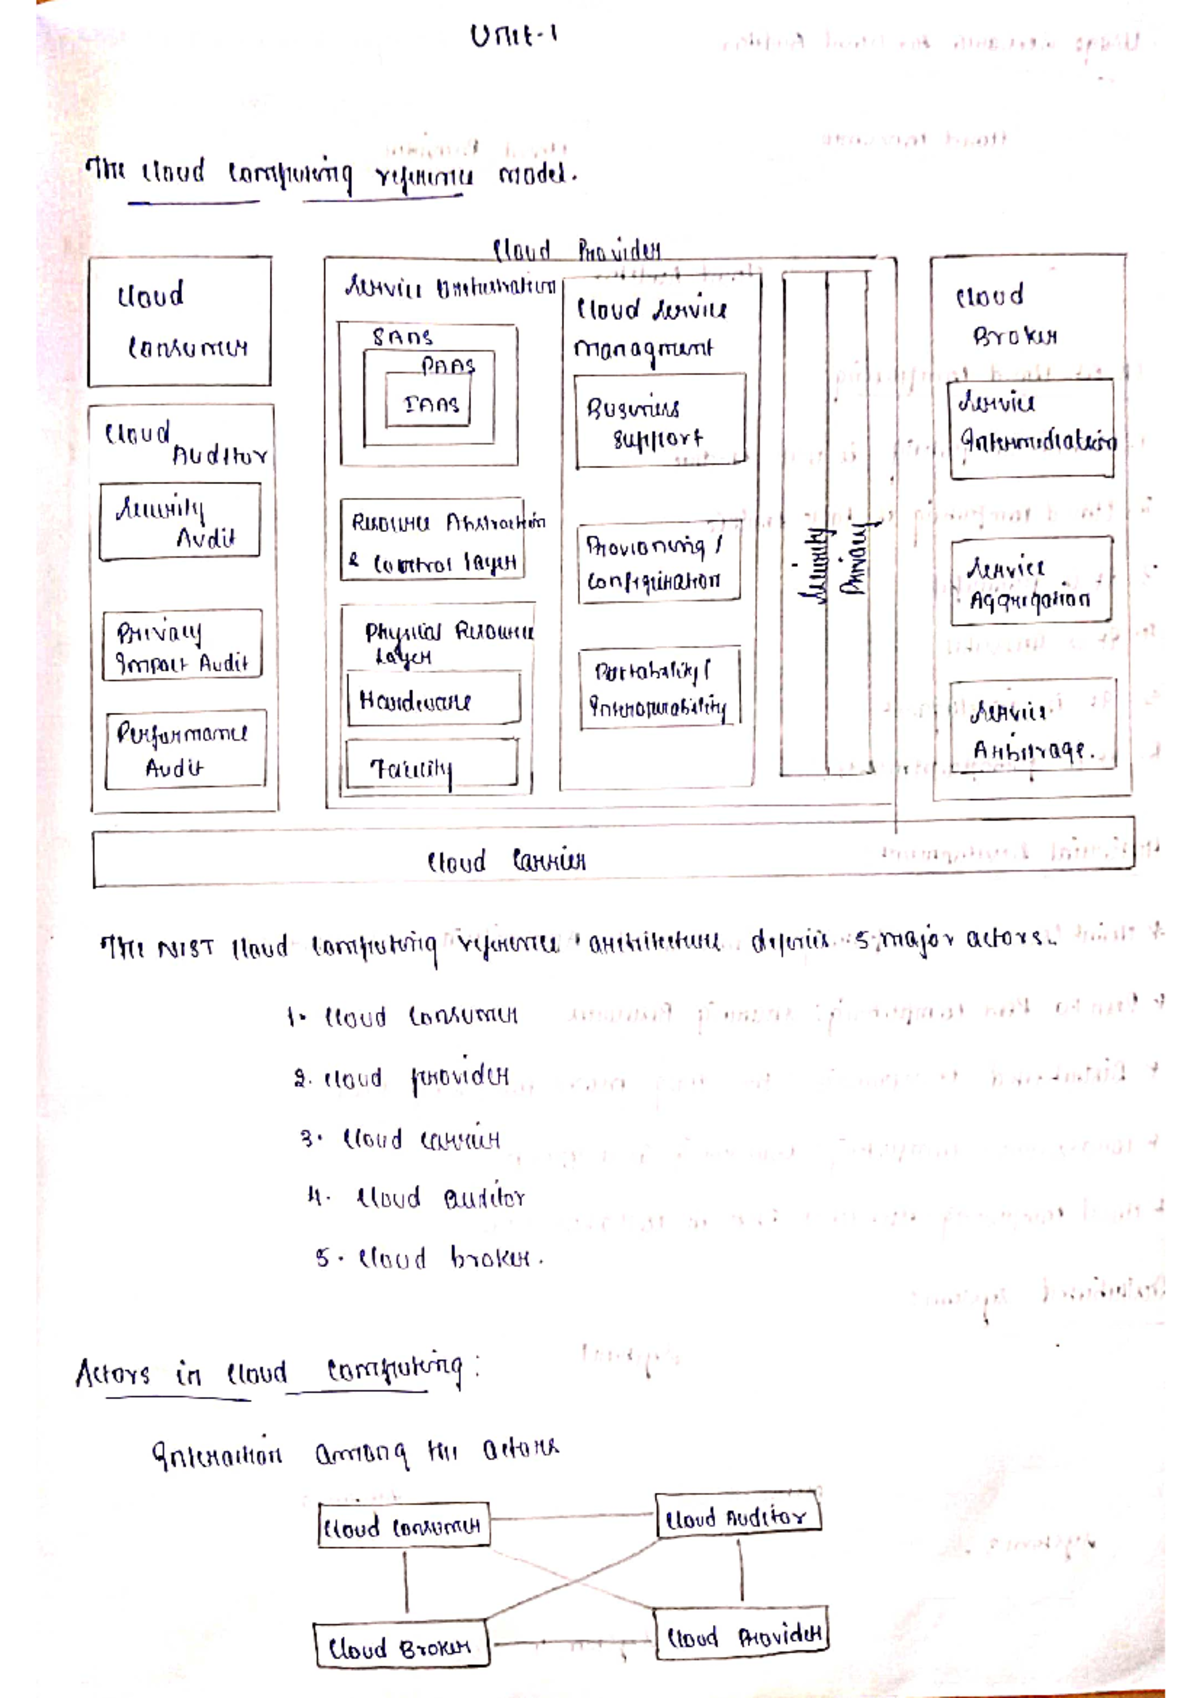 Unit-1
The Cloud Computing reference model.
Cloud Provider
Cloud
Consumer
Cloud
Auditor
Security
Audit
Privacy
Impact Audit
Performance
Audit
Service Orchestration
SAAS
PAAS
IAAS
Resource Abstraction
& Control layer
Physical Resource
Layer
Hardware
Facility
Cloud Service
Managment
Business
Support
Provioning /
Configuration
Portability /
Interoperability
Security
Privacy
Cloud
Broker
Service
Intermediation
Service
Aggrigation
Service
Arbitrage.
Cloud Carrier
The NIST Cloud Computing reference architecture defines 5 major actors.
1. Cloud Consumer
2. Cloud provider
3. Cloud carrier
4. Cloud auditor
5. Cloud broker.
Actors in Cloud Computing:
Interaction among the actors
Cloud Consumer
Cloud Auditor
Cloud Broker
Cloud Provider